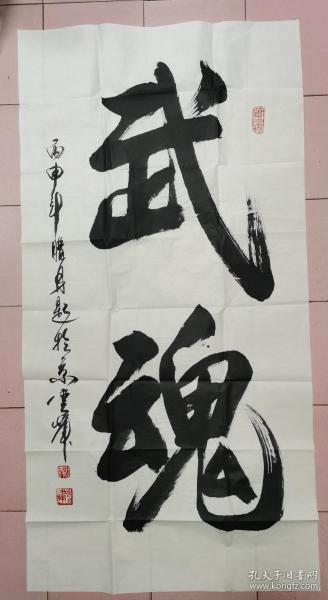 武魂
丙申年腊月题于京 奎峰
孔夫子旧书网
www.kongfz.com